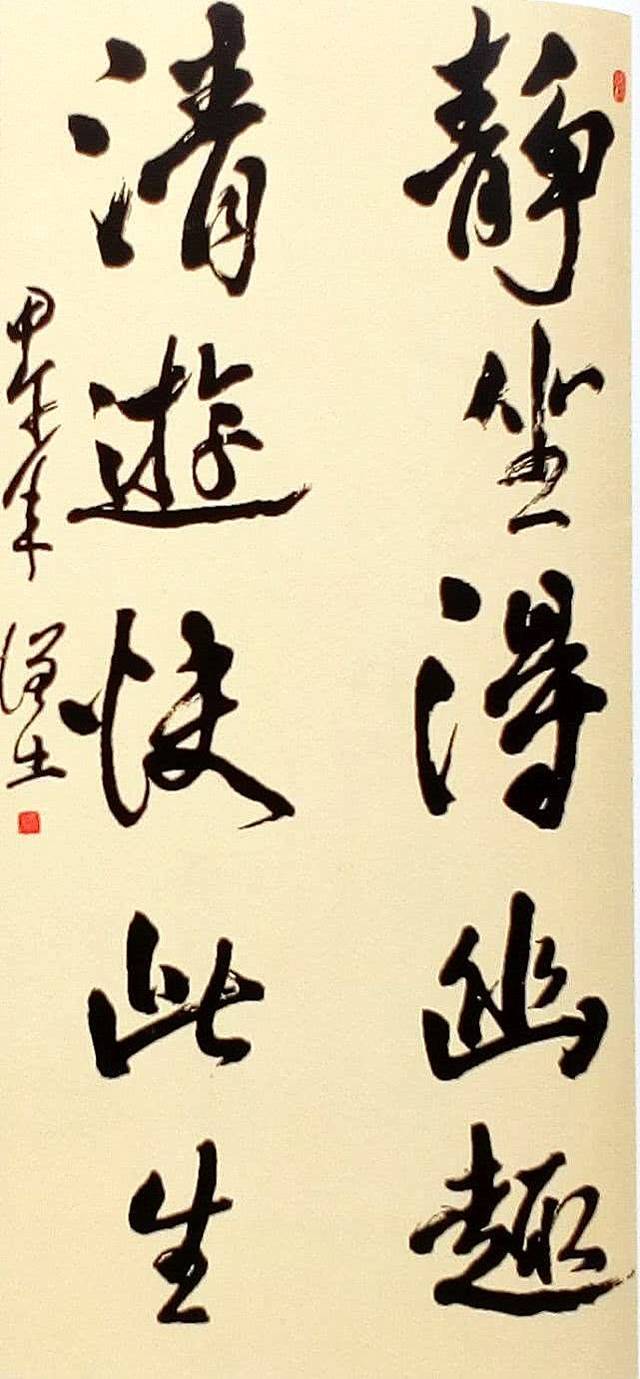 靜坐得幽趣
清遊快此生
甲午年 漢生